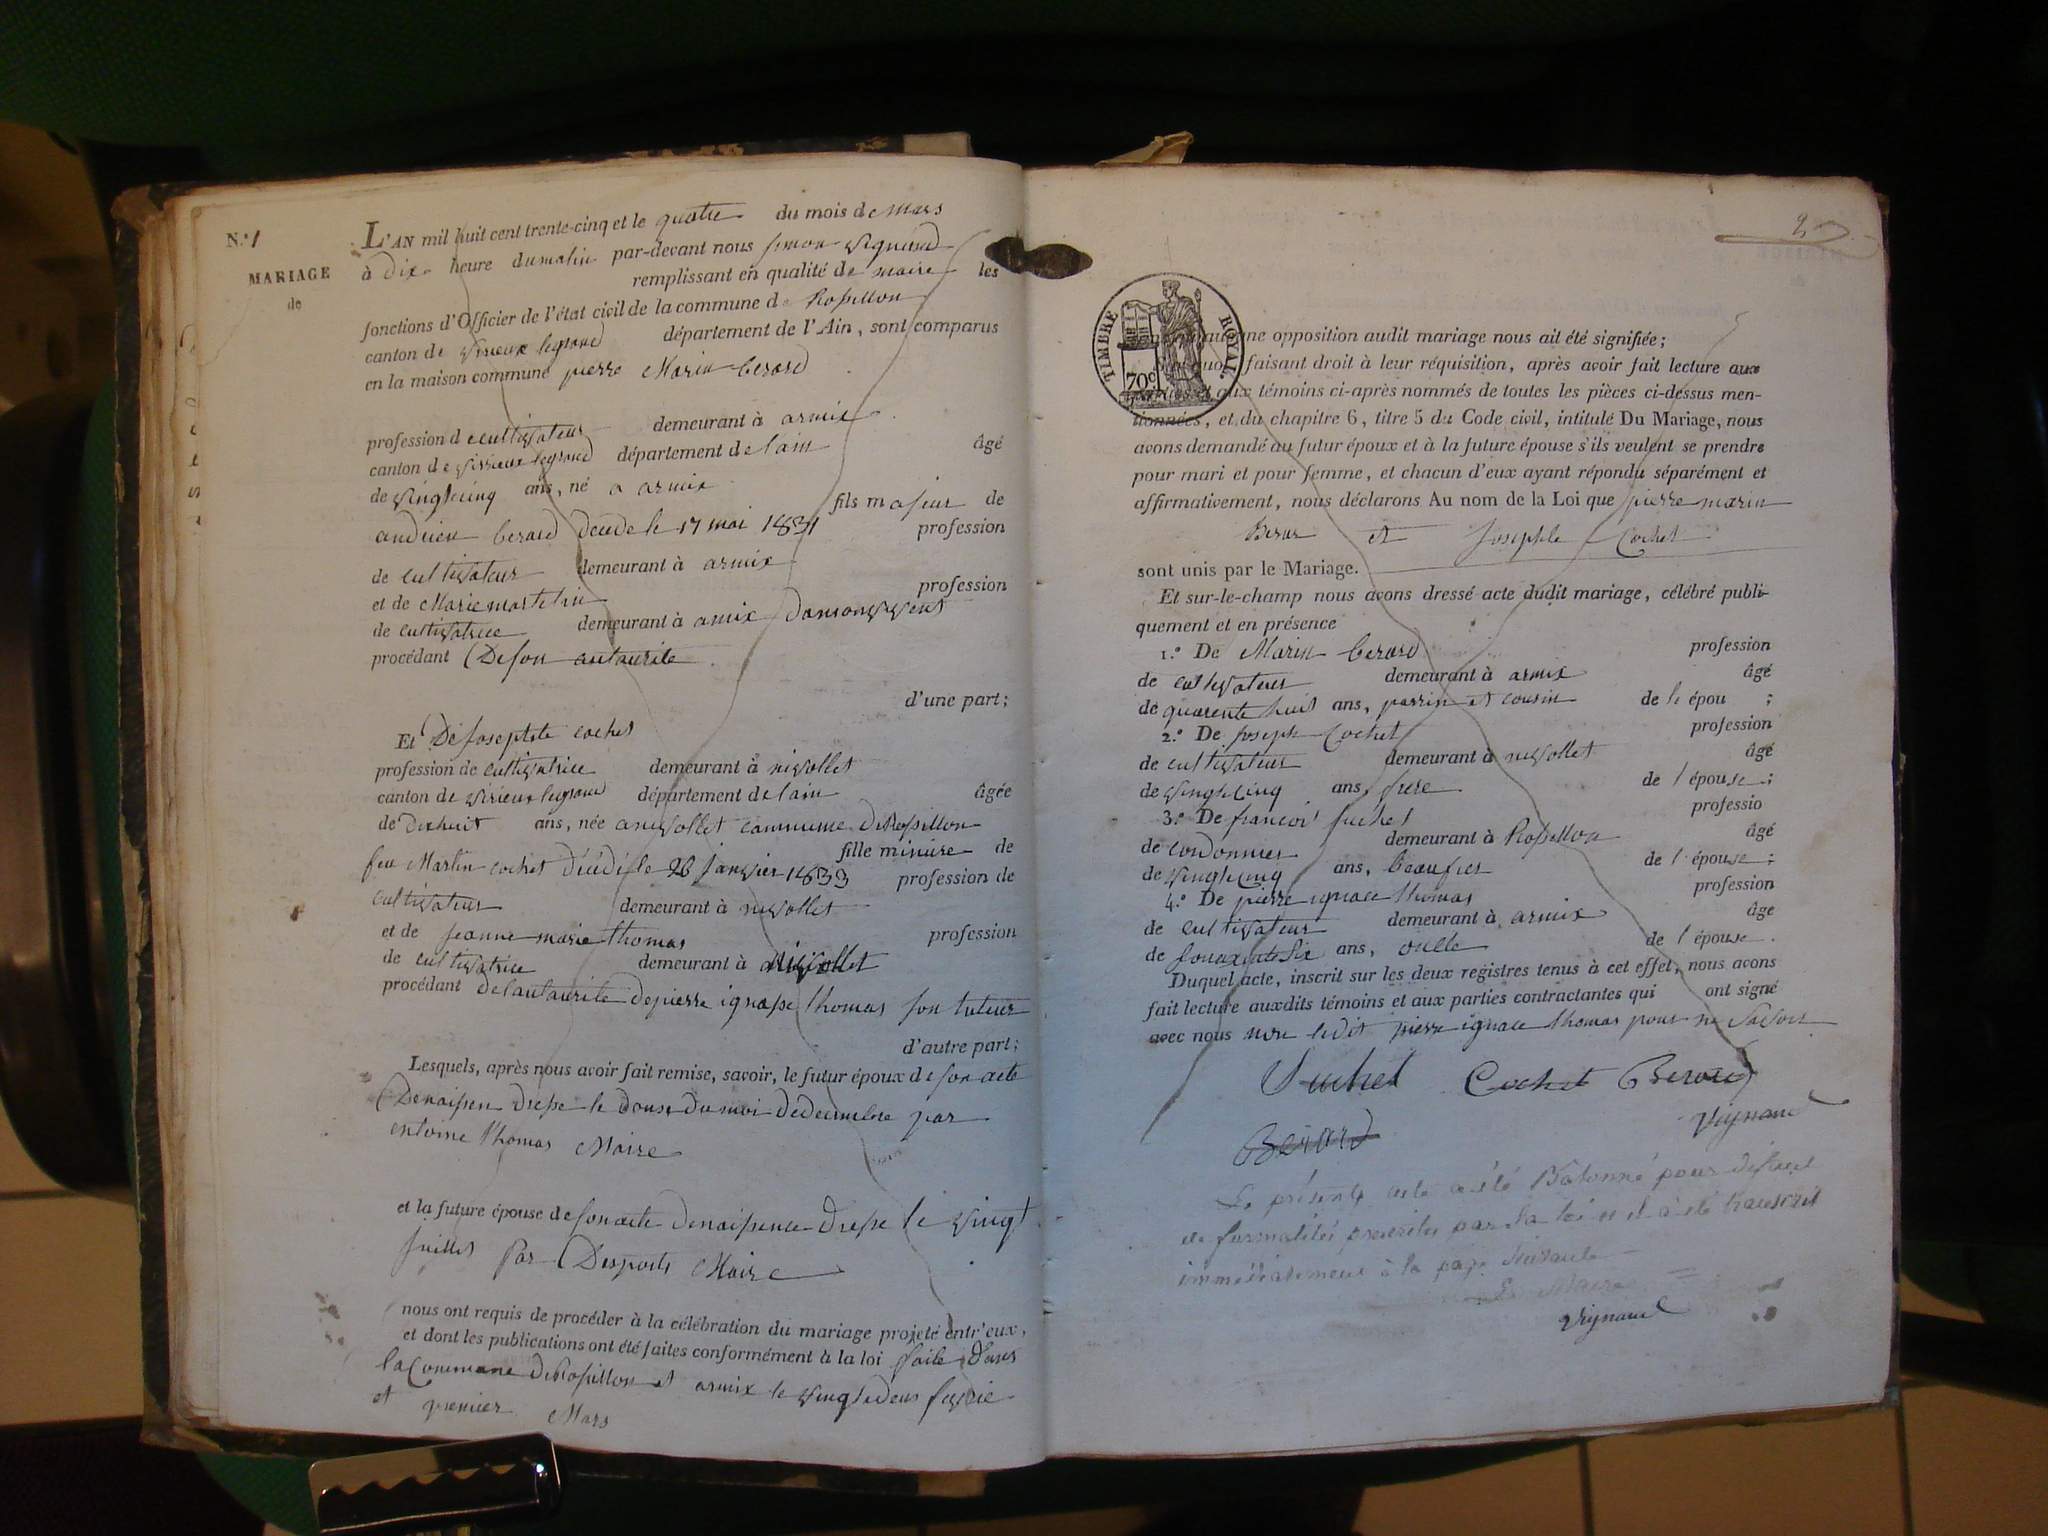 N.° 1
MARIAGE
de
L'AN mil huit cent trente-cinq et le quatre du mois de Mars
à dix heure du matin par-devant nous
remplissant en qualité de maire les
fonctions d'Officier de l'état civil de la commune de Rossillon
canton de Virieux legrand département de l'Ain, sont comparus
en la maison commune pierre Marin berard
profession de cultivateur demeurant à armix
canton de Virieux legrand département de lain âgé
de vingtcinq ans, né a armix
fils majeur de
andrien berard décéde le 17 mai 1831 profession
de cultivateur demeurant à armix
et de Marie martelin profession
de cultivatrice demeurant à armix
procédant De son autaurité
d'une part;
Et De josephte cochet
profession de cultivatrice demeurant à nivollet
canton de virieux legrand département de lain âgée
de dixhuit ans, née a nivollet commune de Rossillon
fille minure de
feu Martin cochet décédé le 28 janvier 1833 profession de
cultivateur demeurant à nivollet
et de jeanne marie thomas profession
de cultivatrice demeurant à nivollet
procédant de lautaurité de pierre ignasse thomas son tuteur
d'autre part;
Lesquels, après nous avoir fait remise, savoir, le futur époux de son acte
De naissen dresse le douse du moi de decembre par
antoine thomas Maire
et la future épouse de son acte de naissence dresse le vingt
juillet par Desports Maire
nous ont requis de procéder à la célébration du mariage projeté entr'eux,
et dont les publications ont été faites conformément à la loi faite dans
la Commune de Rossillon et armix le vingtedeux
et premier Mars
2
TIMBRE ROYAL
70c
une opposition audit mariage nous ait été signifiée;
faisant droit à leur réquisition, après avoir fait lecture aux
aux témoins ci-après nommés de toutes les pièces ci-dessus men-
tionnées, et du chapitre 6, titre 5 du Code civil, intitulé Du Mariage, nous
avons demandé au futur époux et à la future épouse s'ils veulent se prendre
pour mari et pour femme, et chacun d'eux ayant répondu séparément et
affirmativement, nous déclarons Au nom de la Loi que pierre marin
Berar et josephte Cochet
sont unis par le Mariage.
Et sur-le-champ nous avons dressé acte dudit mariage, célébré publi-
quement et en présence
1.° De Marin berard profession
de cultivateur demeurant à armix âgé
de quarente huit ans, parrin et cousin de l épou ;
2.° De joseph Cochet profession
de cultivateur demeurant à nivollet âgé
de vingtcinq ans, frere de l'épouse;
3.° De francoi suchet professio
de cordonnier demeurant à Rossillon âgé
de vingtcinq ans, beaufrer de l'épouse;
4.° De pierre ignace thomas profession
de cultivateur demeurant à armix âge
de soixante six ans, oncle de l'épouse.
Duquel acte, inscrit sur les deux registres tenus à cet effet, nous avons
fait lecture auxdits témoins et aux parties contractantes qui ont signé
avec nous non ledit pierre ignace thomas pour ne savoir
Suchet Cochet Berard
Vignand
Berard
Le présent acte a été Batonné pour defaut
de formalités prescrites par la loi et il a été transcrit
immédiatement à la page suivante
Le Maire
Vignand